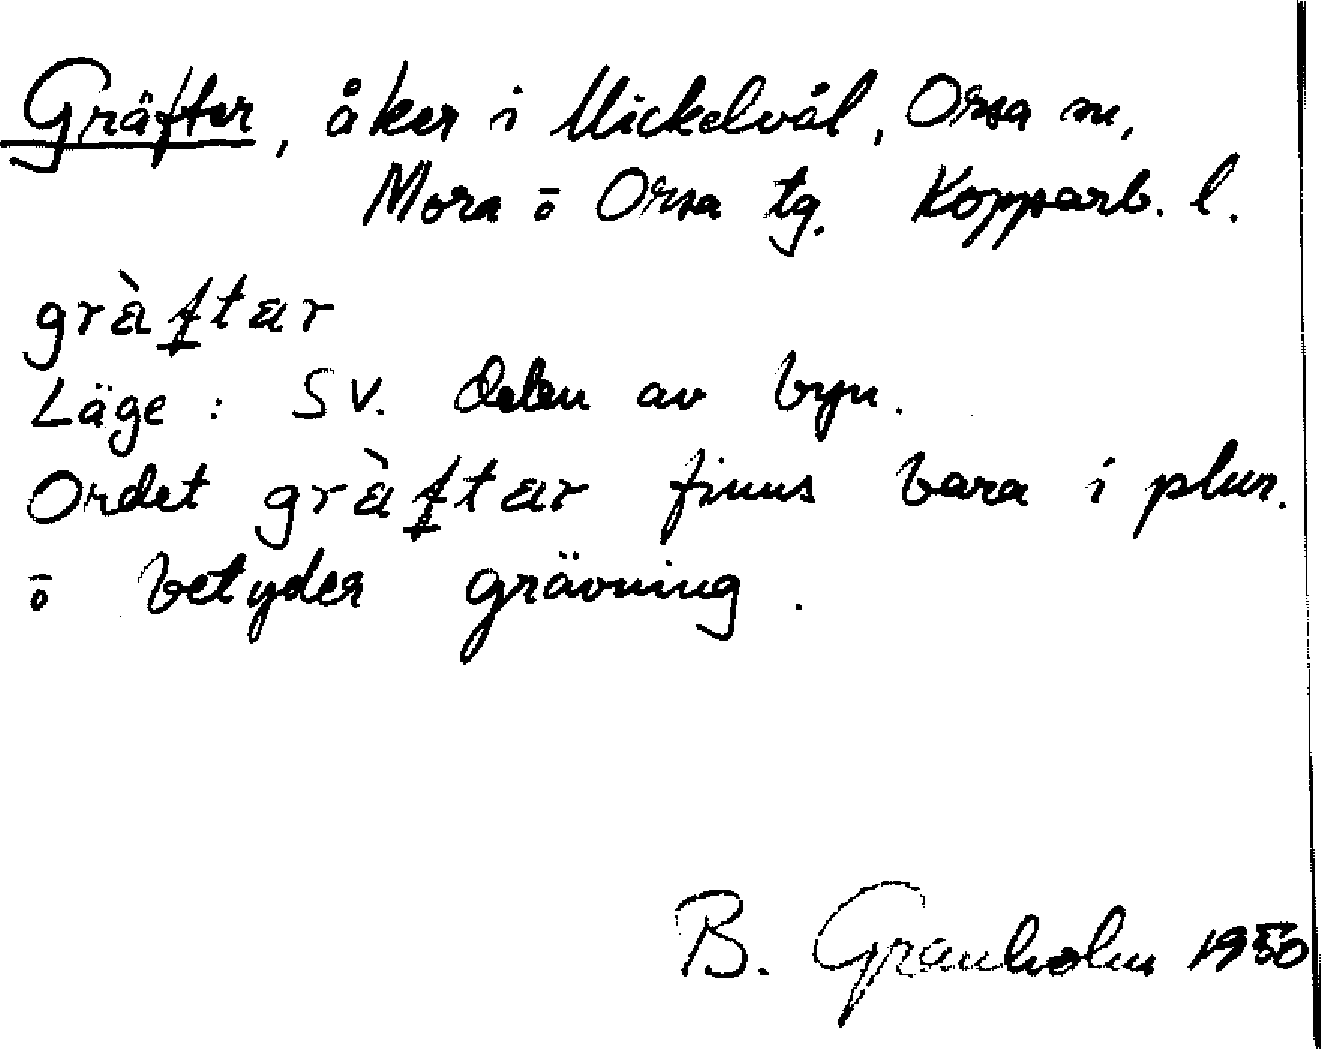 Gräfter, åker i Mickelvål, Orsa sn,
Mora ō Orsa tg. Kopparb. l.
græ̀ftær
Läge: SV. delen av byn.
Ordet græ̀ftær finns bara i plur.
ō betyder grävning.
B. Granholm 1950